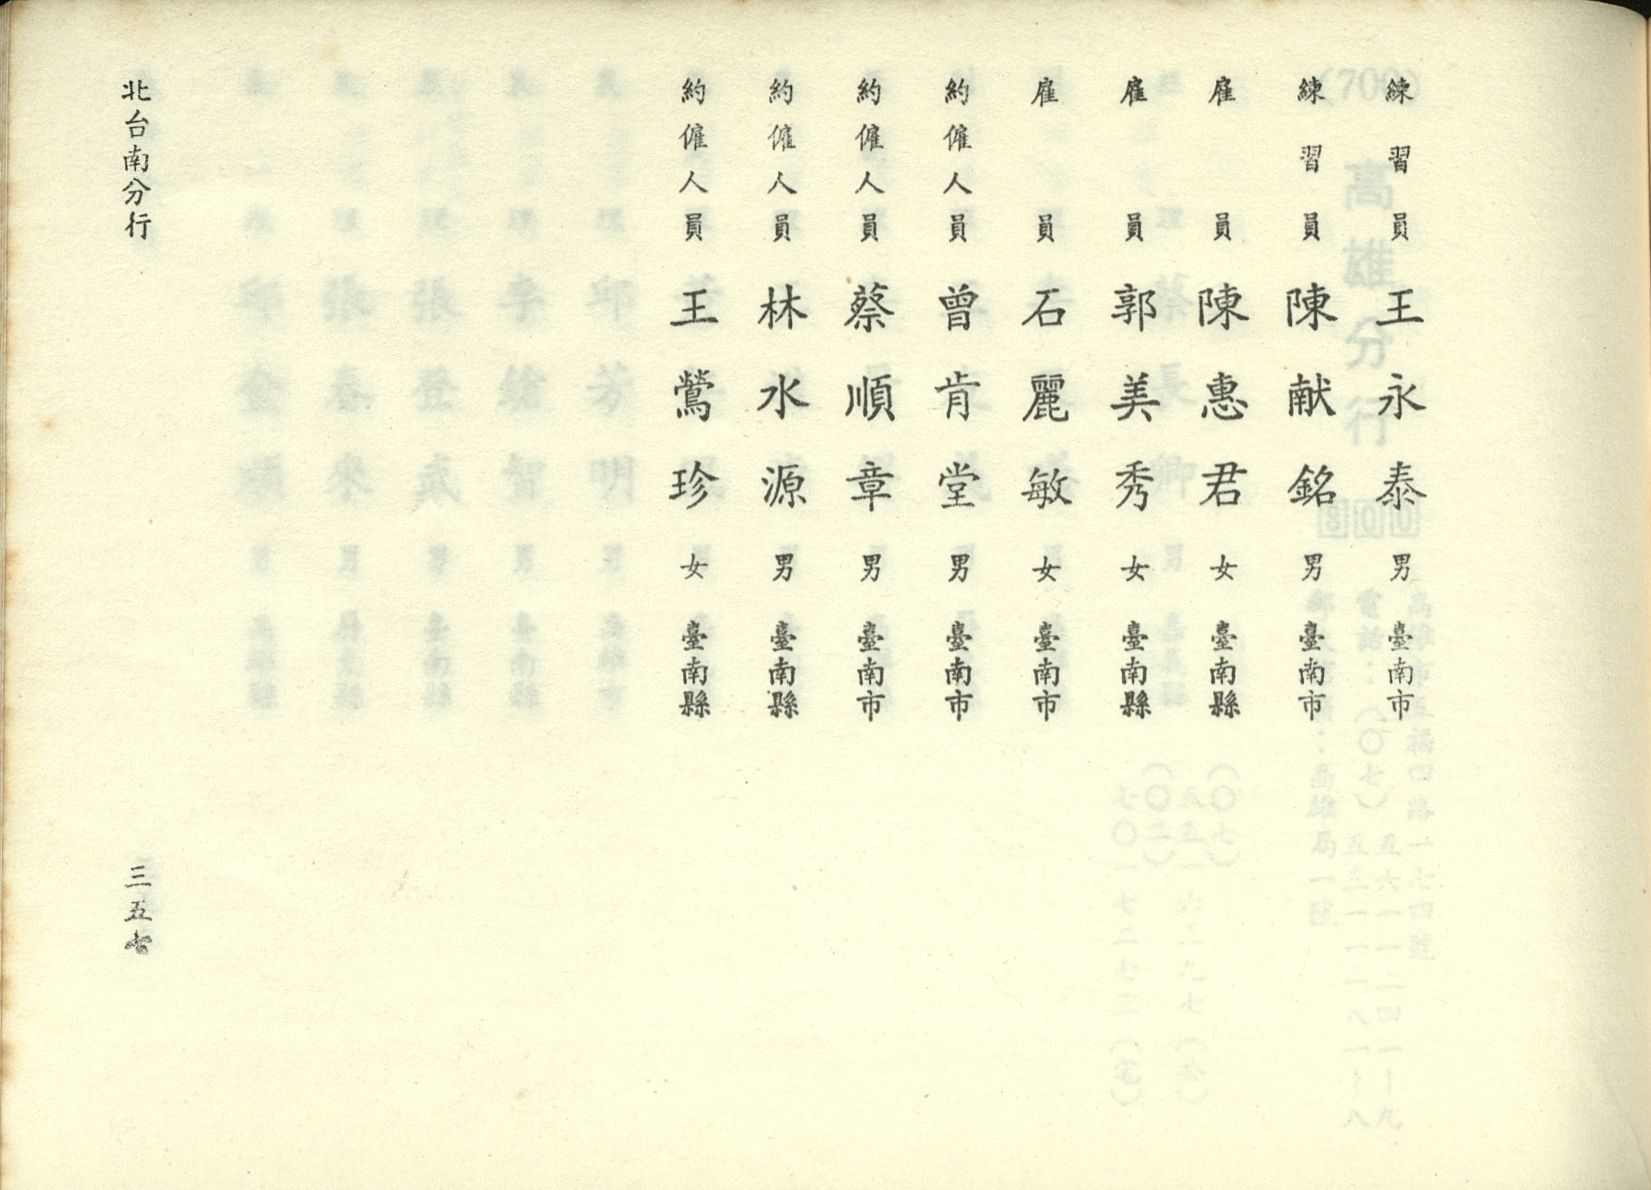 練習員 王永泰 男 臺南市
練習員 陳献銘 男 臺南市
雇員 陳惠君 女 臺南縣
雇員 郭美秀 女 臺南縣
雇員 石麗敏 女 臺南市
約僱人員 曾肯堂 男 臺南市
約僱人員 蔡順章 男 臺南市
約僱人員 林水源 男 臺南縣
約僱人員 王鶯珍 女 臺南縣
北台南分行
三五七